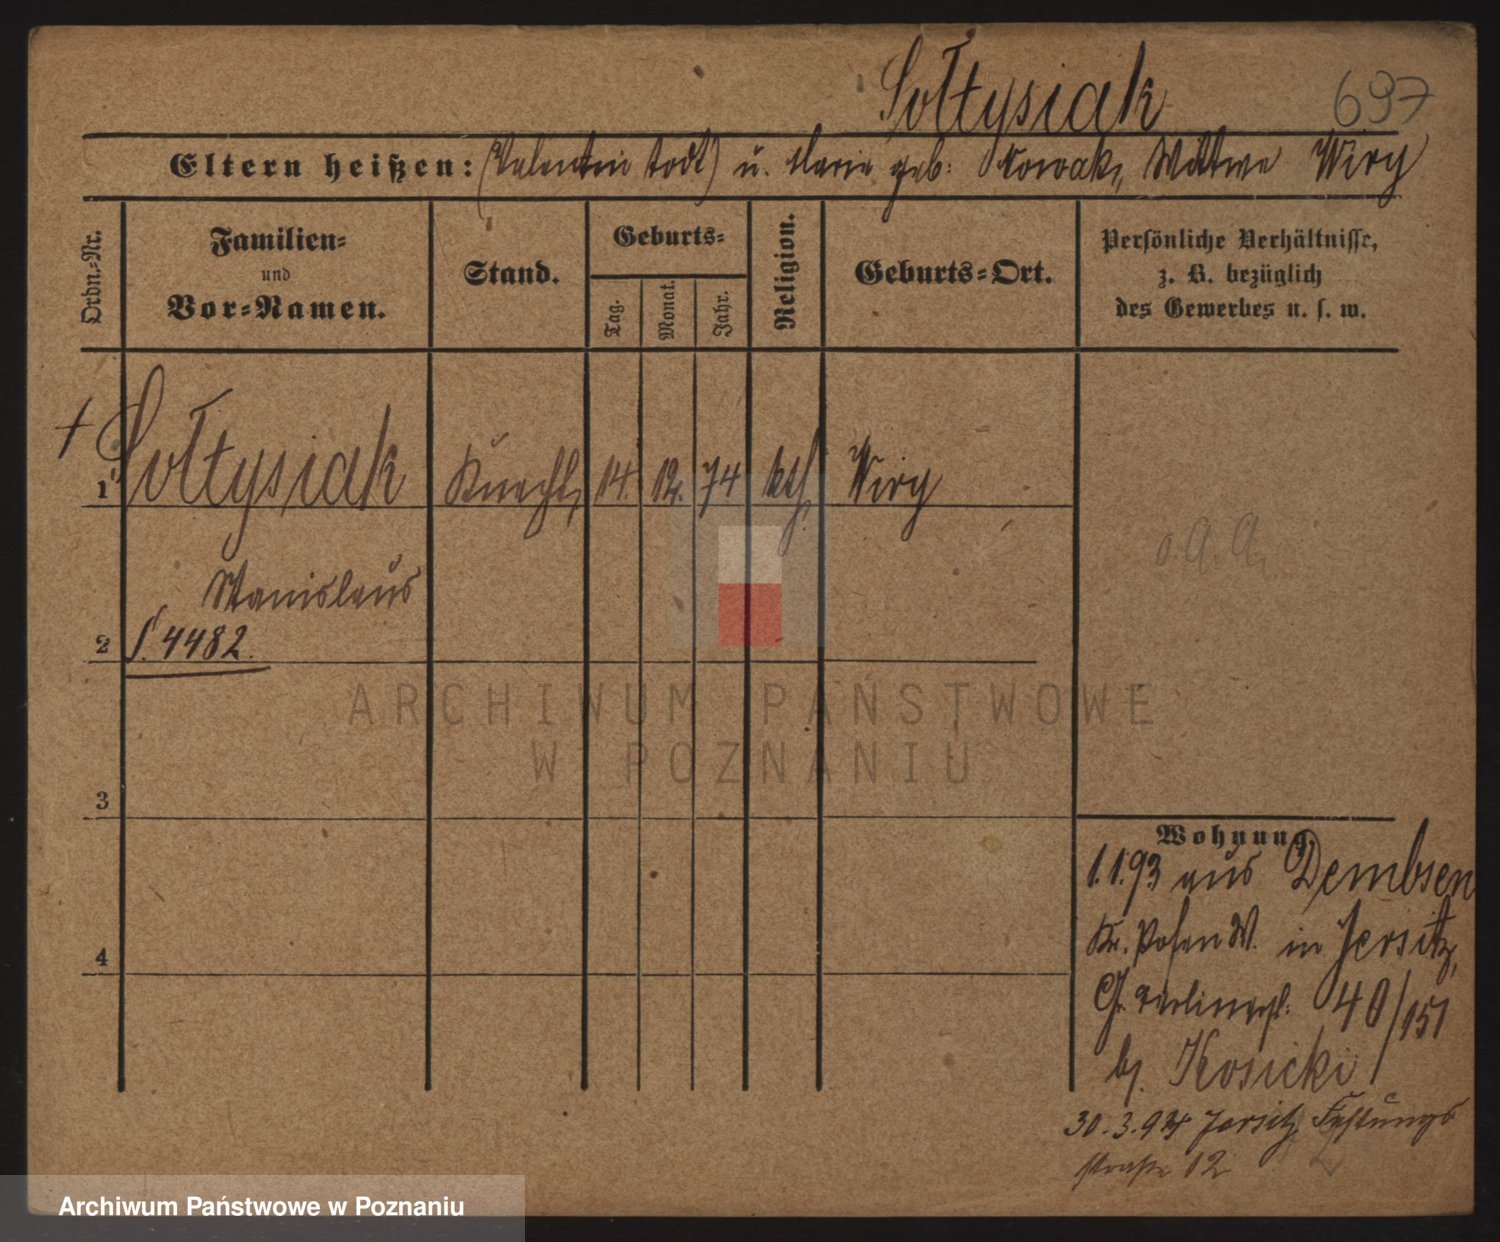 Sołtysiak 697
Eltern heißen: (Valentin todt) u. Marie geb: Nowak, Wittwe Wiry
Ordn.-Nr.
Familien-
und
Vor-Namen.
Stand.
Geburts-
Tag.
Monat.
Jahr.
Religion.
Geburts-Ort.
Persönliche Verhältnisse,
z. B. bezüglich
des Gewerbes u. s. w.
1 Sołtysiak Knecht 14. 12. 74 kth. Wiry
Stanislaus
2 S. 4482.
3
4
o. A. A.
Wohnung.
1.1.93 aus Dembsen
Kr. Posen W. in Jersitz,
Gr. Berlinerst. 40/151
bj. Kosicki
30.3.94 Jersitz Festungs
straße 12
ARCHIWUM PAŃSTWOWE
W POZNANIU
Archiwum Państwowe w Poznaniu